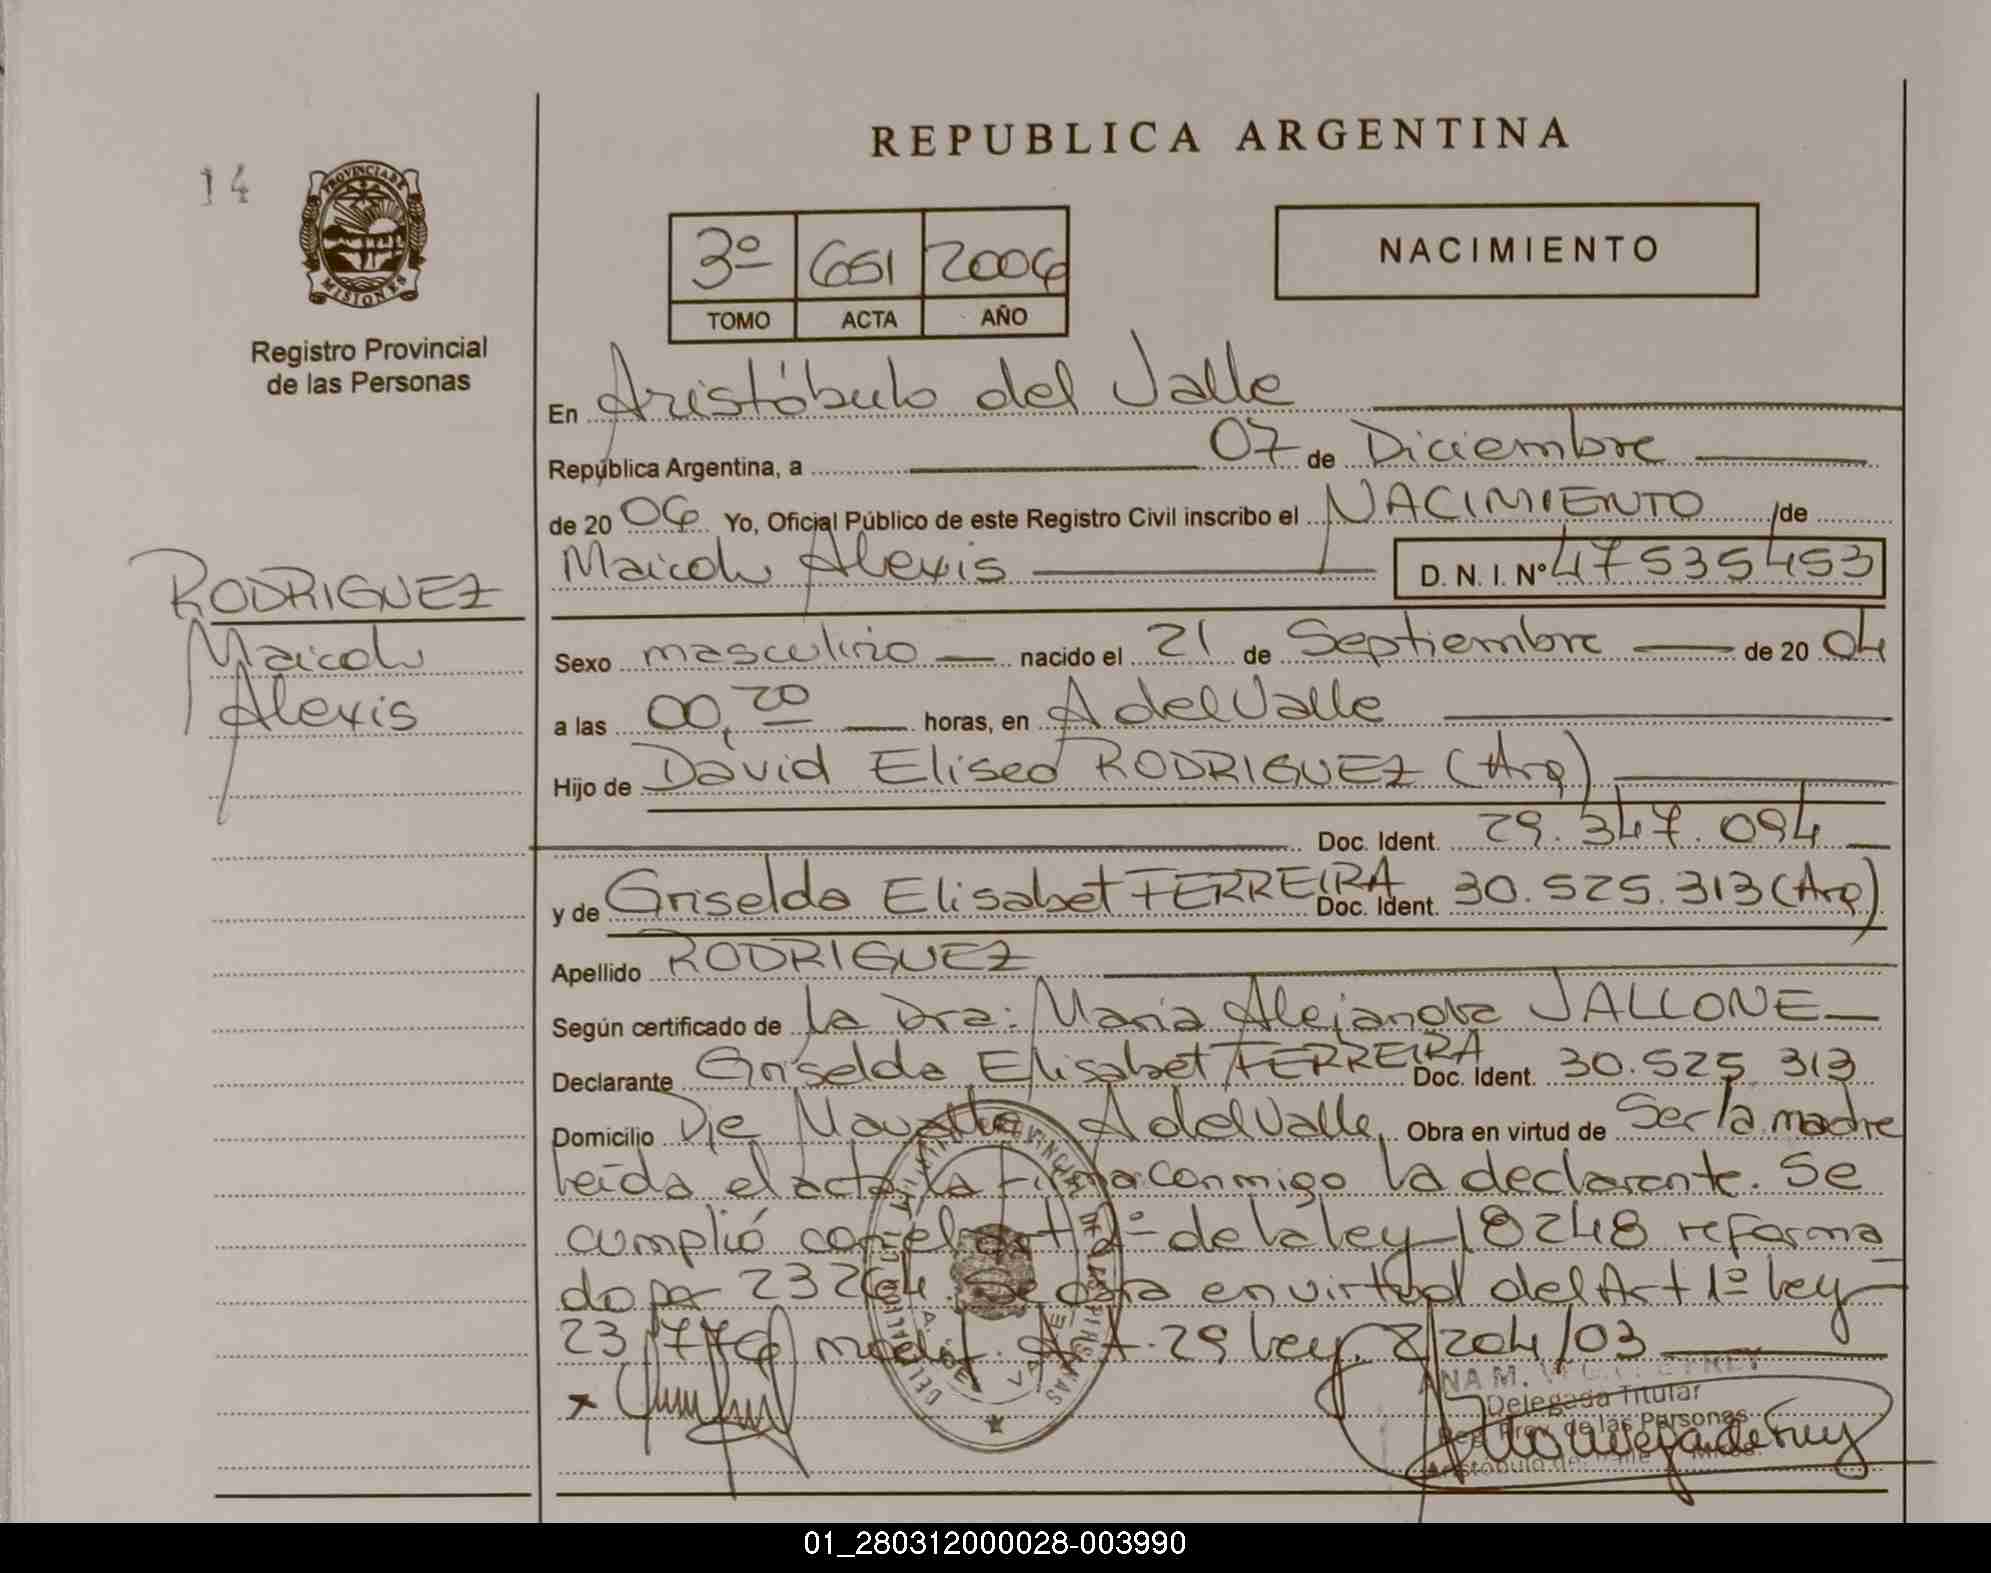 REPUBLICA ARGENTINA
14
PROVINCIA DE
MISIONES
Registro Provincial
de las Personas
3º 651 2006
TOMO ACTA AÑO
NACIMIENTO
En Aristóbulo del Valle
República Argentina, a 07 de Diciembre
de 20 06 Yo, Oficial Público de este Registro Civil inscribo el NACIMIENTO /de
Maicol Alexis D. N. I. Nº 47535453
RODRIGUEZ
Maicol
Alexis
Sexo masculino nacido el 21 de Septiembre de 20 04
a las 00,20 horas, en A del Valle
Hijo de David Eliseo RODRIGUEZ (Arg)
Doc. Ident. 29.347.094
y de Griselda Elisabet FERREIRA Doc. Ident. 30.525.313 (Arg)
Apellido RODRIGUEZ
Según certificado de La Dra: Maria Alejandra JALLONE
Declarante Griselda Elisabet FERREIRA Doc. Ident. 30.525.313
Domicilio A del Valle, Obra en virtud de Ser la madre
Leída el acta la firma conmigo la declarante. Se
cumplió con el art 2º de la ley 18248 reforma
do por 23264. Se en virtud del Art 1º Ley
23776 modif. Art. 29 Ley. 2/204/03
ANA M.
Delegada Titular
Reg. Prov. de las Personas
Aristóbulo del Valle
01_280312000028-003990